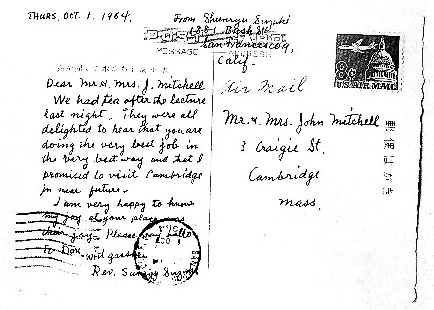 THURS, OCT. 1, 1964,
From Shunryu Suzuki
1881 Bush St.
San Francisco,
Calif.
MESSAGE
ADDRESS
8¢
U.S. AIR MAIL
Air Mail
Dear Mr. & Mrs. J. Mitchell
We had tea after the lecture
last night. They were all
delighted to hear that you are
doing the very best job in
the very best way and that I
promised to visit Cambridge
in near future.
I am very happy to know
my joy at your place was
their joy. Please say hello
to Don with gassho
Rev. Shunryu Suzuki
Mr. & Mrs. John Mitchell
3 Craigie St.
Cambridge
Mass.